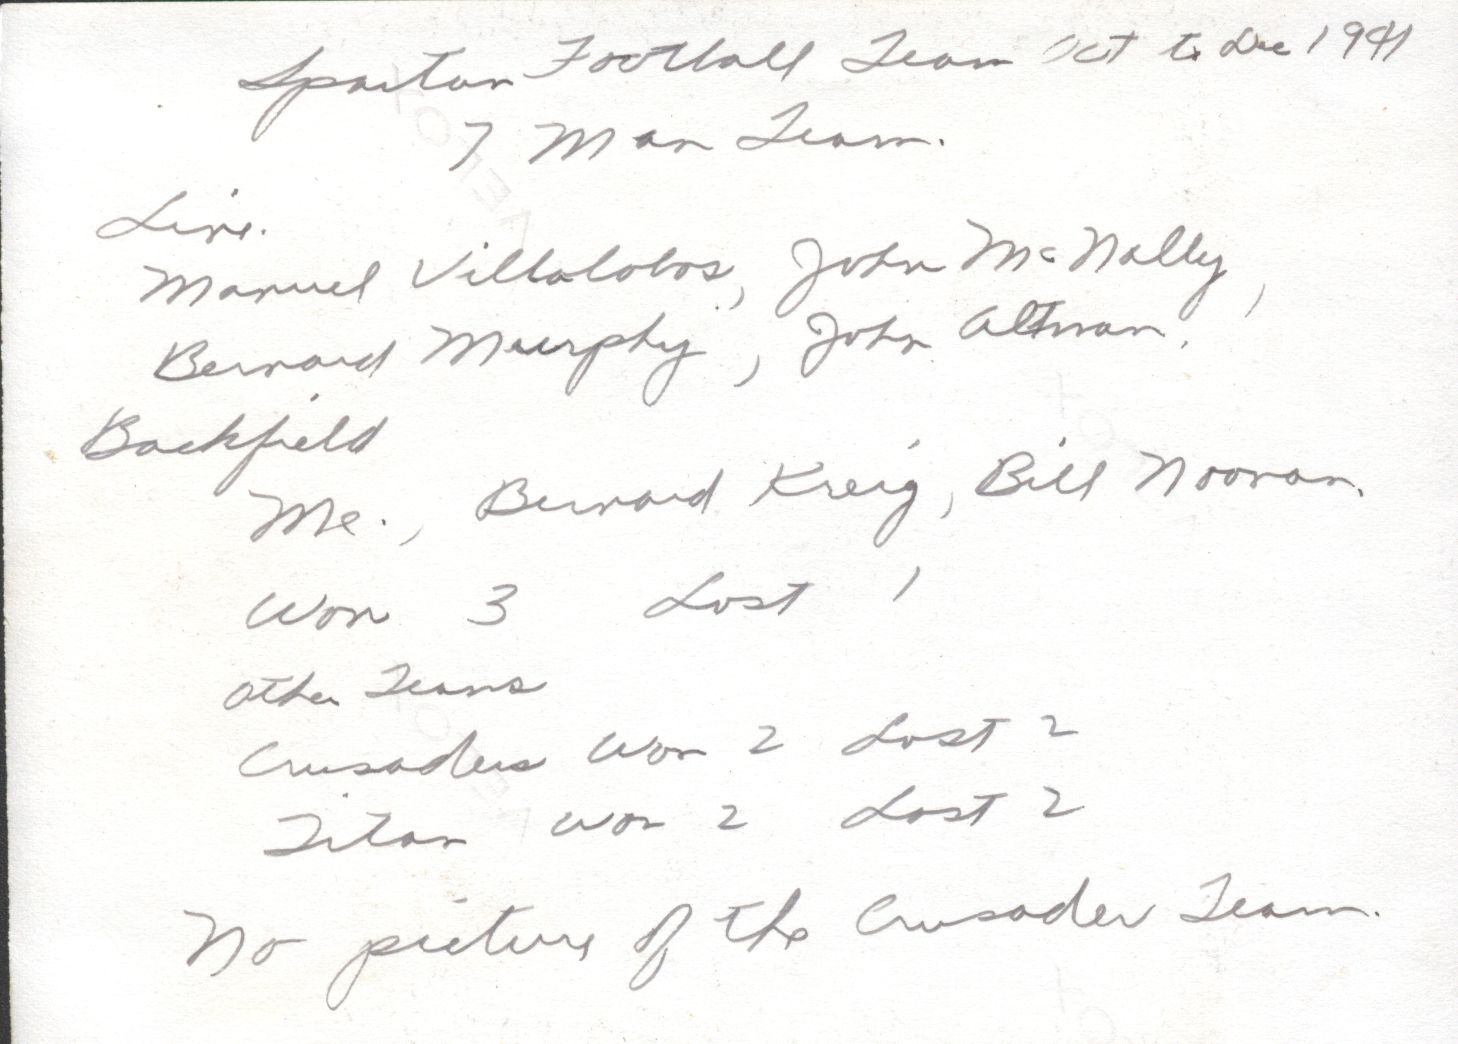 Spartan Football Team Oct to Dec 1941
7 Man Team.
Line.
Manuel Villalobos, John McNally,
Bernard Murphy, John Altman.
Backfield
Me., Bernard Kreig, Bill Noonan.
Won 3 Lost 1
Other Teams
Crusaders Won 2 Lost 2
Titan Won 2 Lost 2
No picture of the Crusader Team.